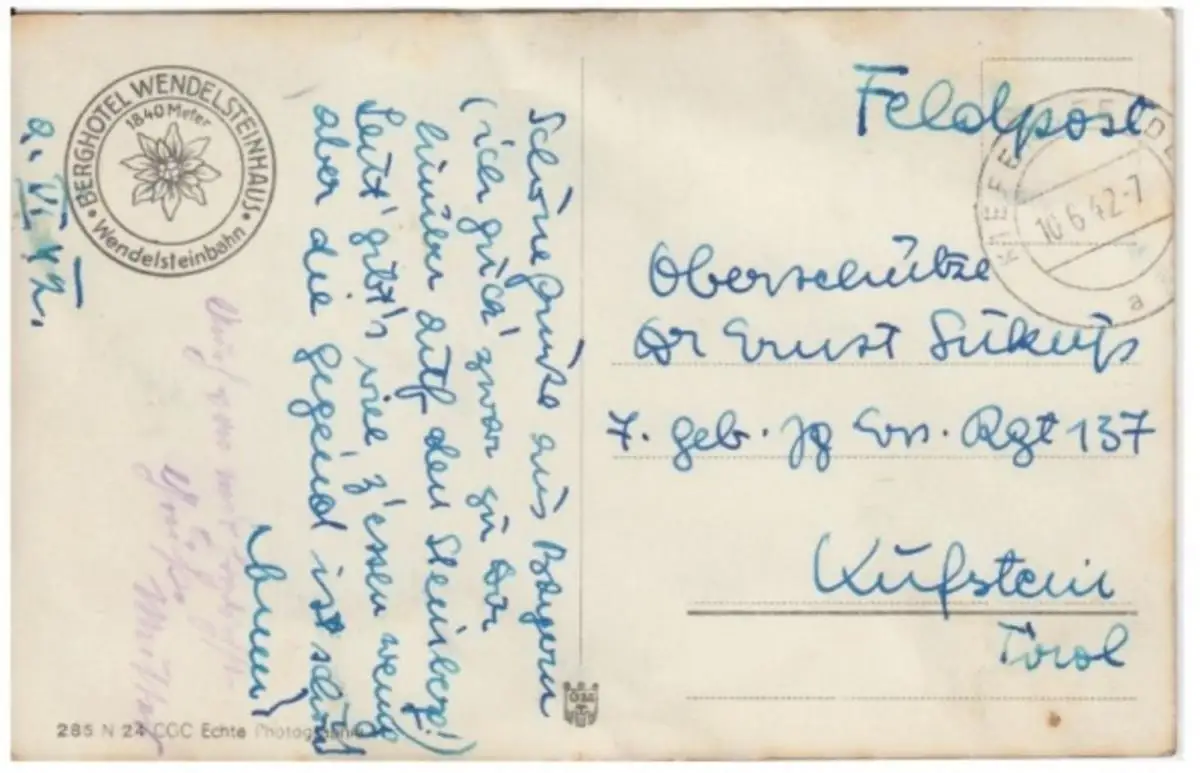 BERGHOTEL WENDELSTEINHAUS
1840 Meter
Wendelsteinbahn
Schöne Grüße aus Bayern
(ich guck' zwar zu Dir
hinüber auf den Steinberg!)
Leut' gibt's viel z'essen wenig
aber die Gegend ist schön
Mutter
285 N 24 CGC Echte Photographie
Feldpost
KIEFE
10.6.42-7
a
Oberschütze
Dr Ernst
7. Geb. Jg Ers. Rgt 137
Kufstein
Tirol